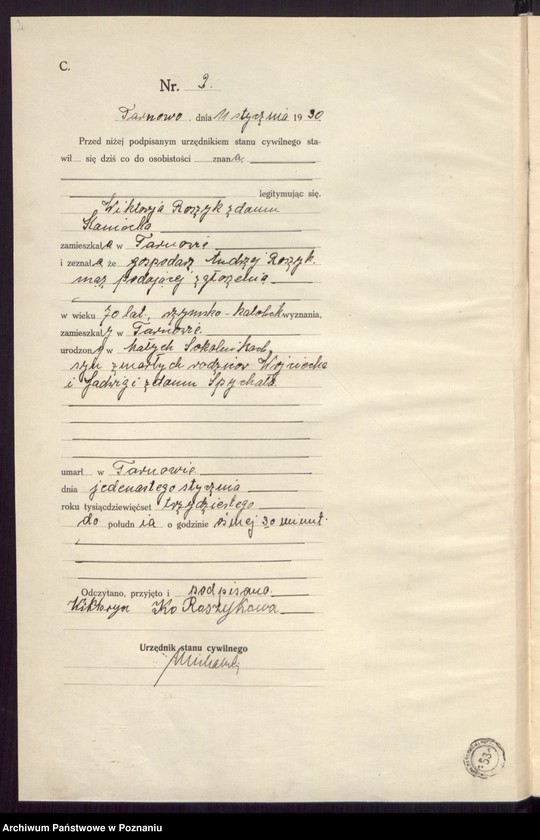 C.
Nr. 2.
Tarnowo, dnia 11 stycznia 1930
Przed niżej podpisanym urzędnikiem stanu cywilnego sta-
wił się dziś co do osobistości znana,
legitymując się,
Wiktorja Roszyk z domu
zamieszkała w Tarnowie
i zeznała, że gospodarz Andrzej Roszyk,
mąż podającej zgłoszenia
w wieku 70 lat, rzymsko-katolick wyznania,
zamieszkały w Tarnowie
urodzony w Małych Sokolnikach,
syn zmarłych rodziców Wojciecha
i Jadwigi z domu Spychała
umarł w Tarnowie
dnia jedenastego stycznia
roku tysiącdziewięćset trzydziestego
do połudn ia o godzinie ósmej 30 minut.
Odczytano, przyjęto i podpisano
Wiktorya Roszykowa
Urzędnik stanu cywilnego
53
Archiwum Państwowe w Poznaniu